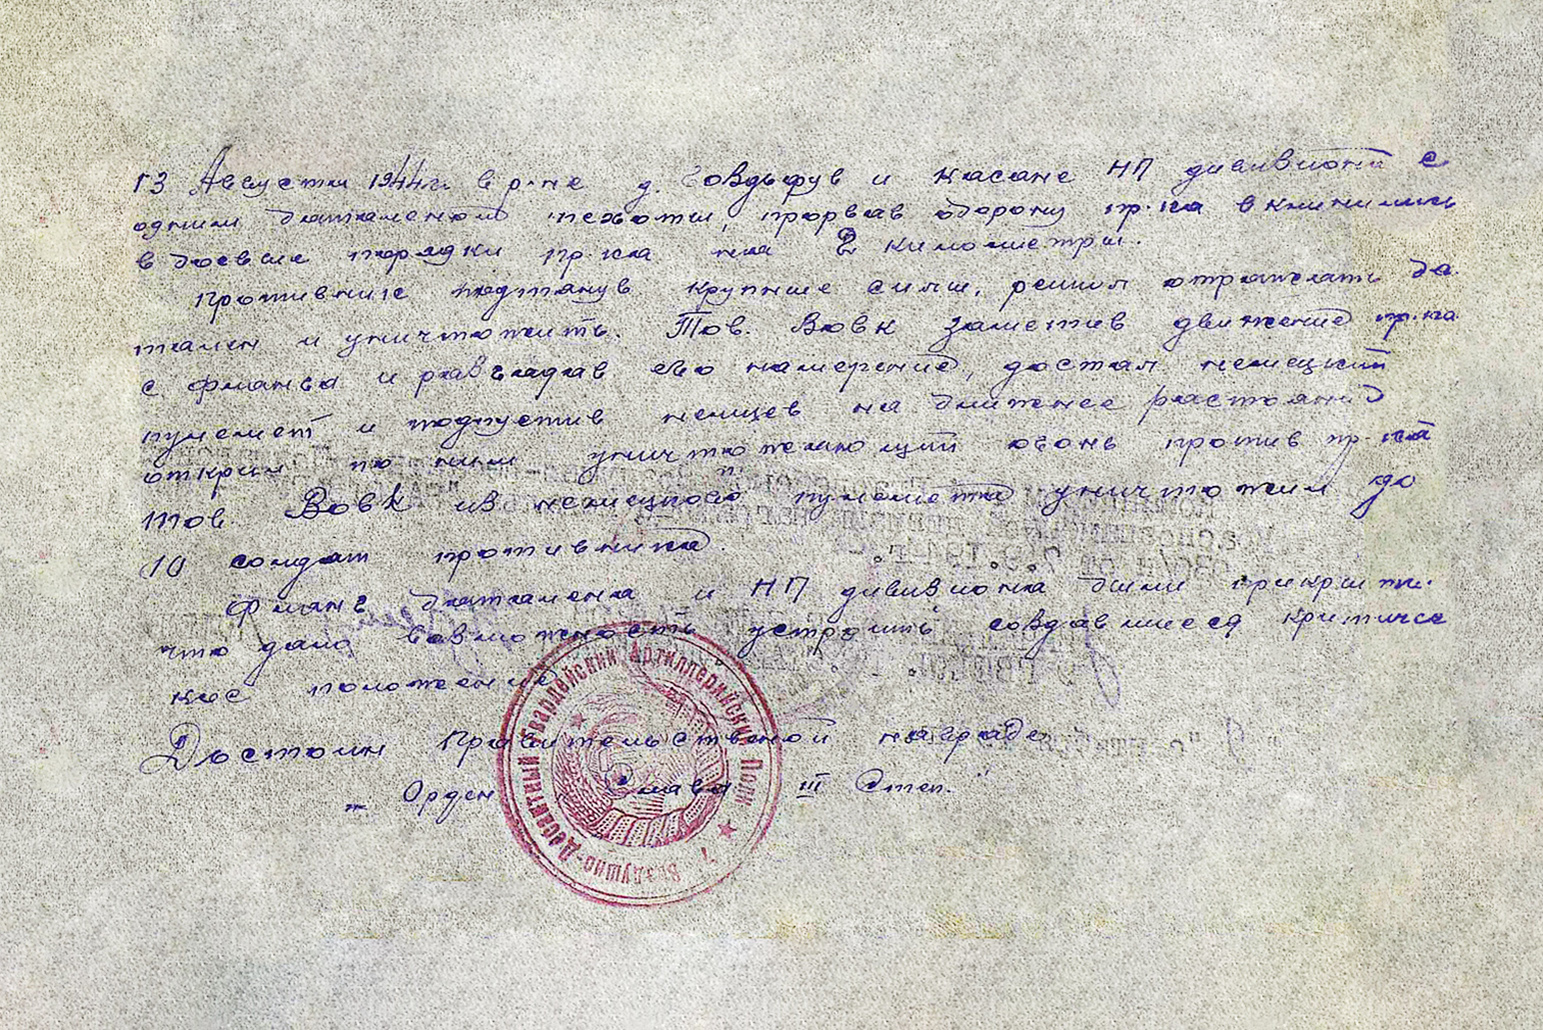 13 Августа 1944г. в р-не д. Говдьфув и Касане НП дивизиона с
одним баталеном пехоты, прорвав оборону пр-ка вклинились
в боевые порядки пр-ка на 2 километры.
Противник подтянув крупные силы, решил отрожать ба-
тален и уничтожить. Тов. Вовк заметив движение пр-ка
с фланга и разгадав его намерение, достал немецкий
пулемет и подпустив немцев на ближнее растояние
открыл по ним уничтожающий огонь против пр-ка
Тов. Вовк из немецкого пулемета уничтожил до
10 солдат противника.
Фланг баталена и НП дивизиона были прикрыты.
что дало возможность устроить создавшиеся критичес
кое положение
Достоин Правительственой награде
"Орден Слава III Степ."
7 Воздушно-Десантный Гвардейский Артиллерийский Полк